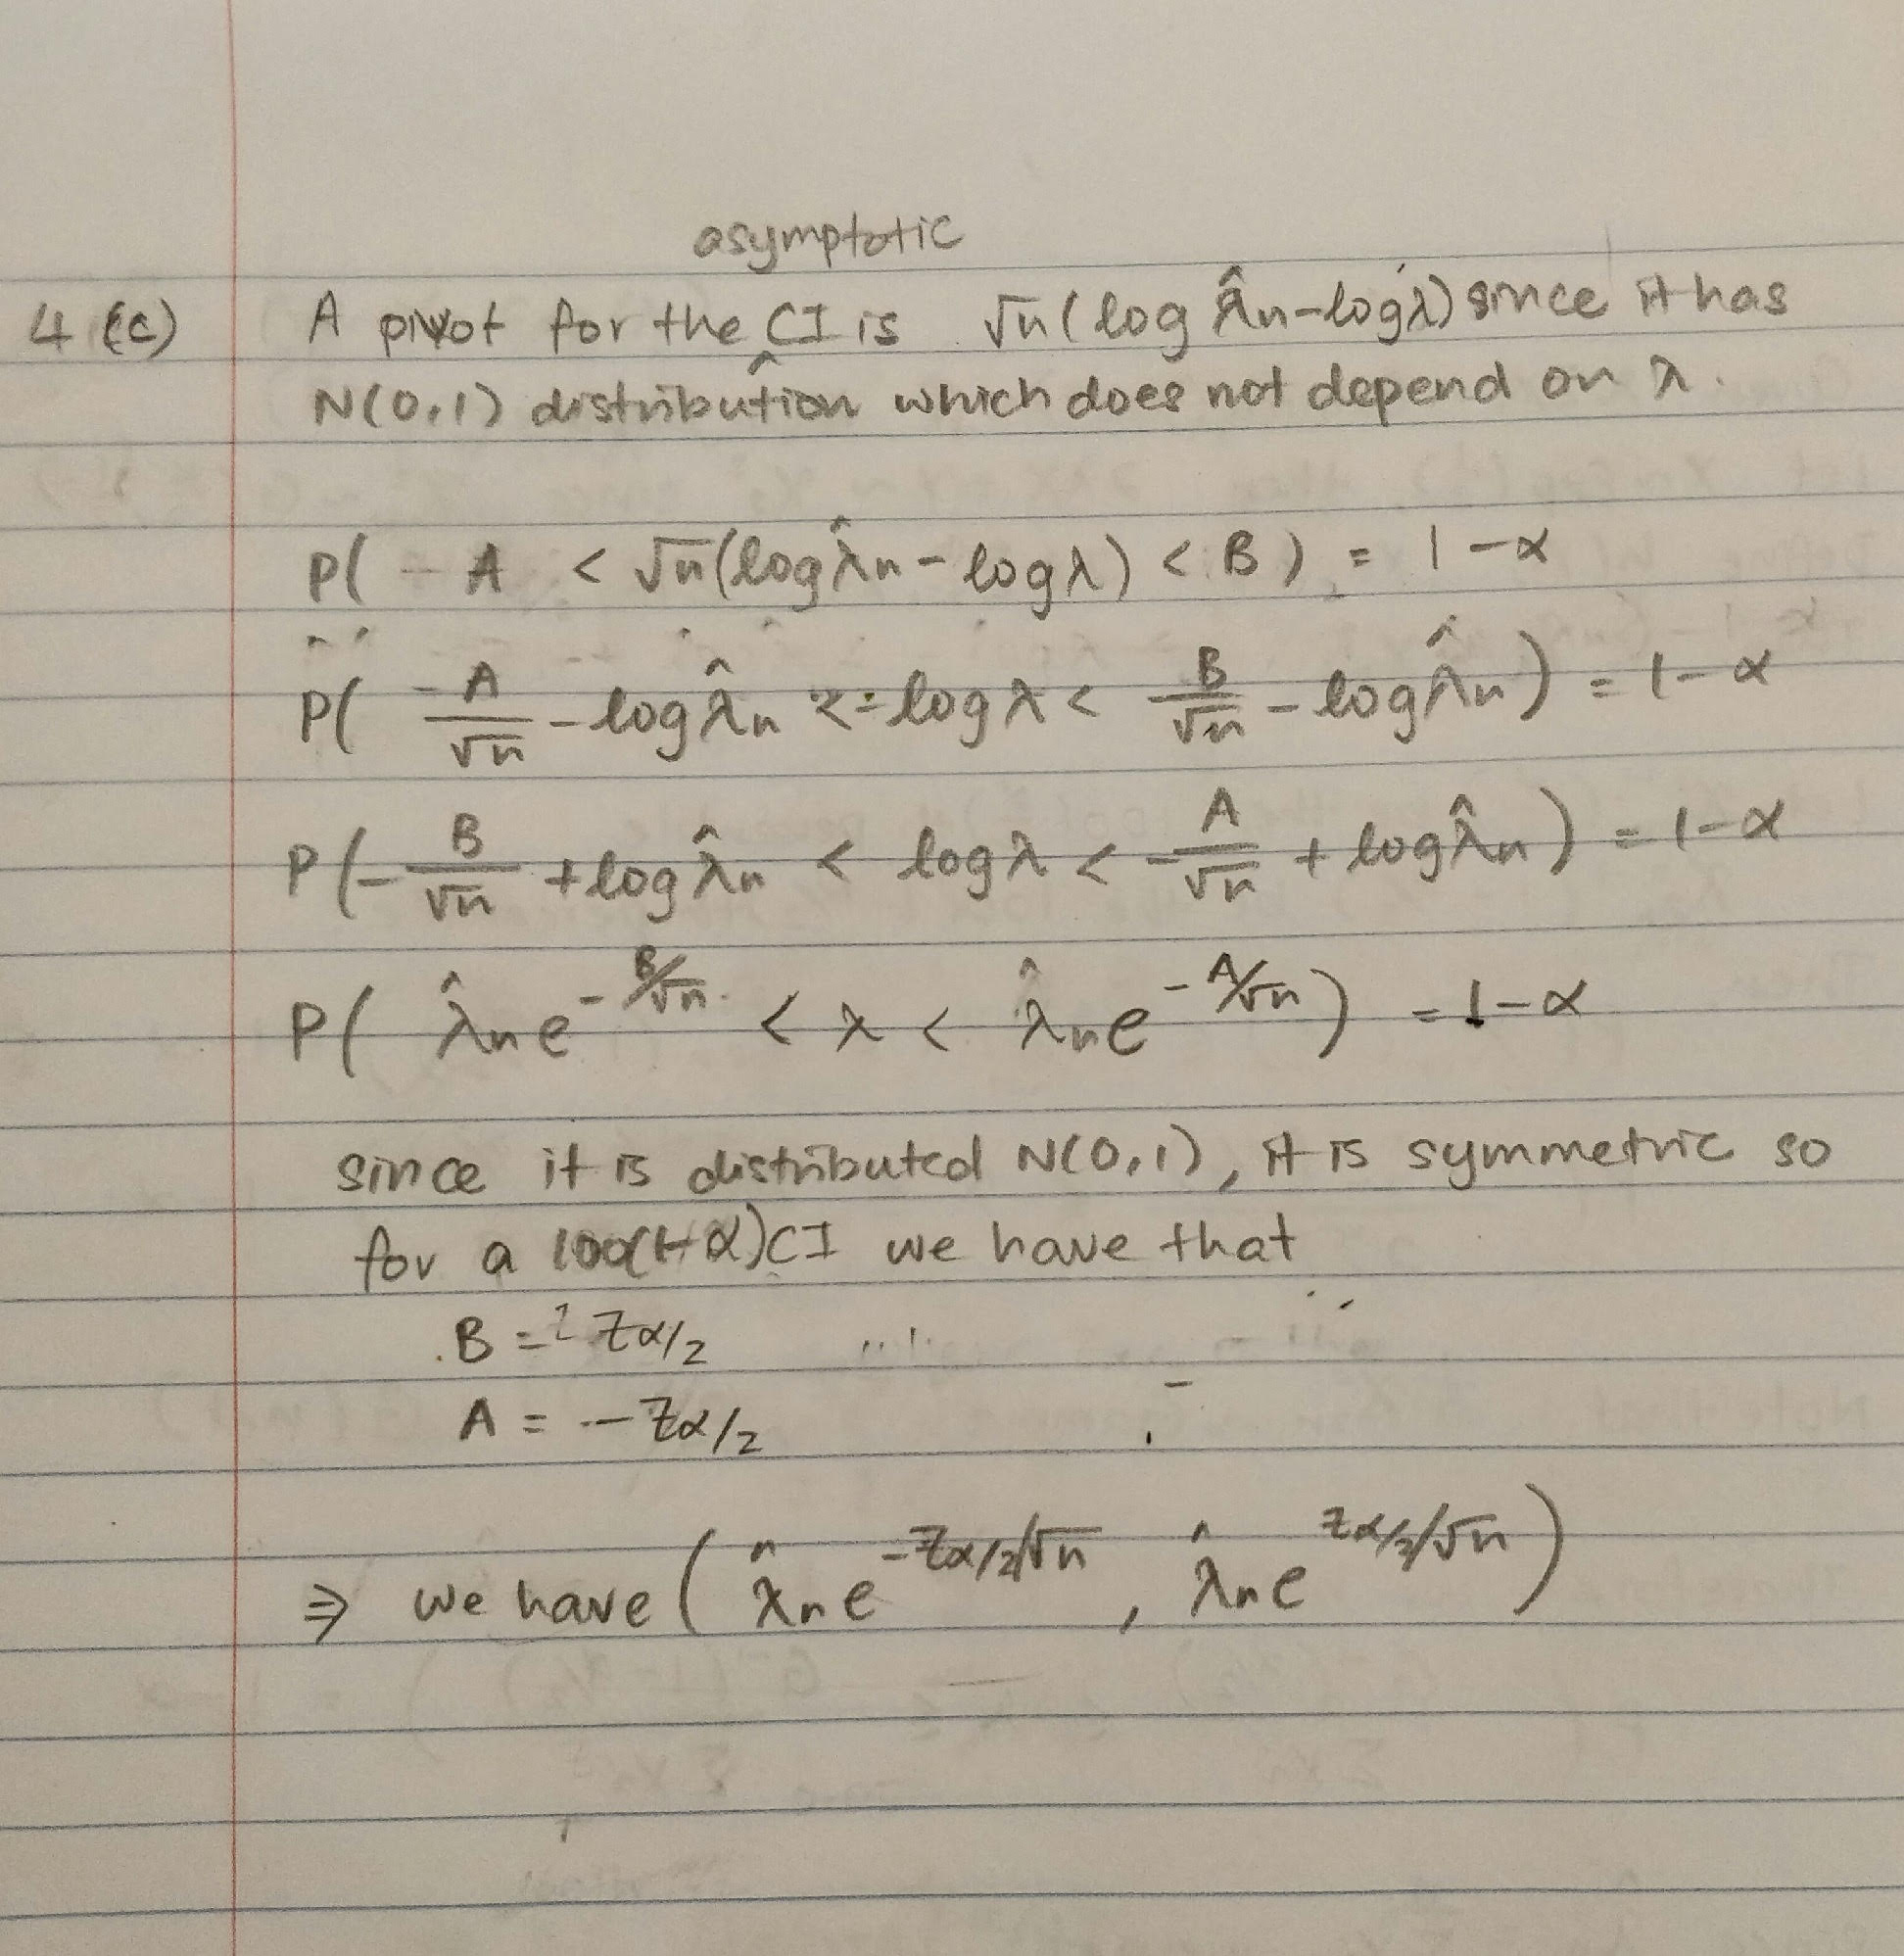 asymptotic
4 (c) A pivot for the CI is √n(log λ̂n - log λ) since it has
N(0,1) distribution which does not depend on λ.
P( - A < √n(log λ̂n - log λ) < B ) = 1 - α
P( -A/√n - log λ̂n < -log λ < B/√n - log λ̂n ) = 1 - α
P( -B/√n + log λ̂n < log λ < -A/√n + log λ̂n ) = 1 - α
P( λ̂n e^(-B/√n) < λ < λ̂n e^(-A/√n) ) = 1 - α
since it is distributed N(0,1), it is symmetric so
for a 100(1-α)CI we have that
B = zα/2
A = - zα/2
⇒ we have ( λ̂n e^(-zα/2/√n) , λ̂n e^(zα/2/√n) )